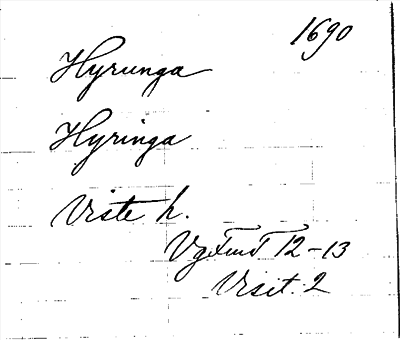 1690
Hyrunga
Hyringa
Viste h.
VgFmT 12-13
Visit. 2